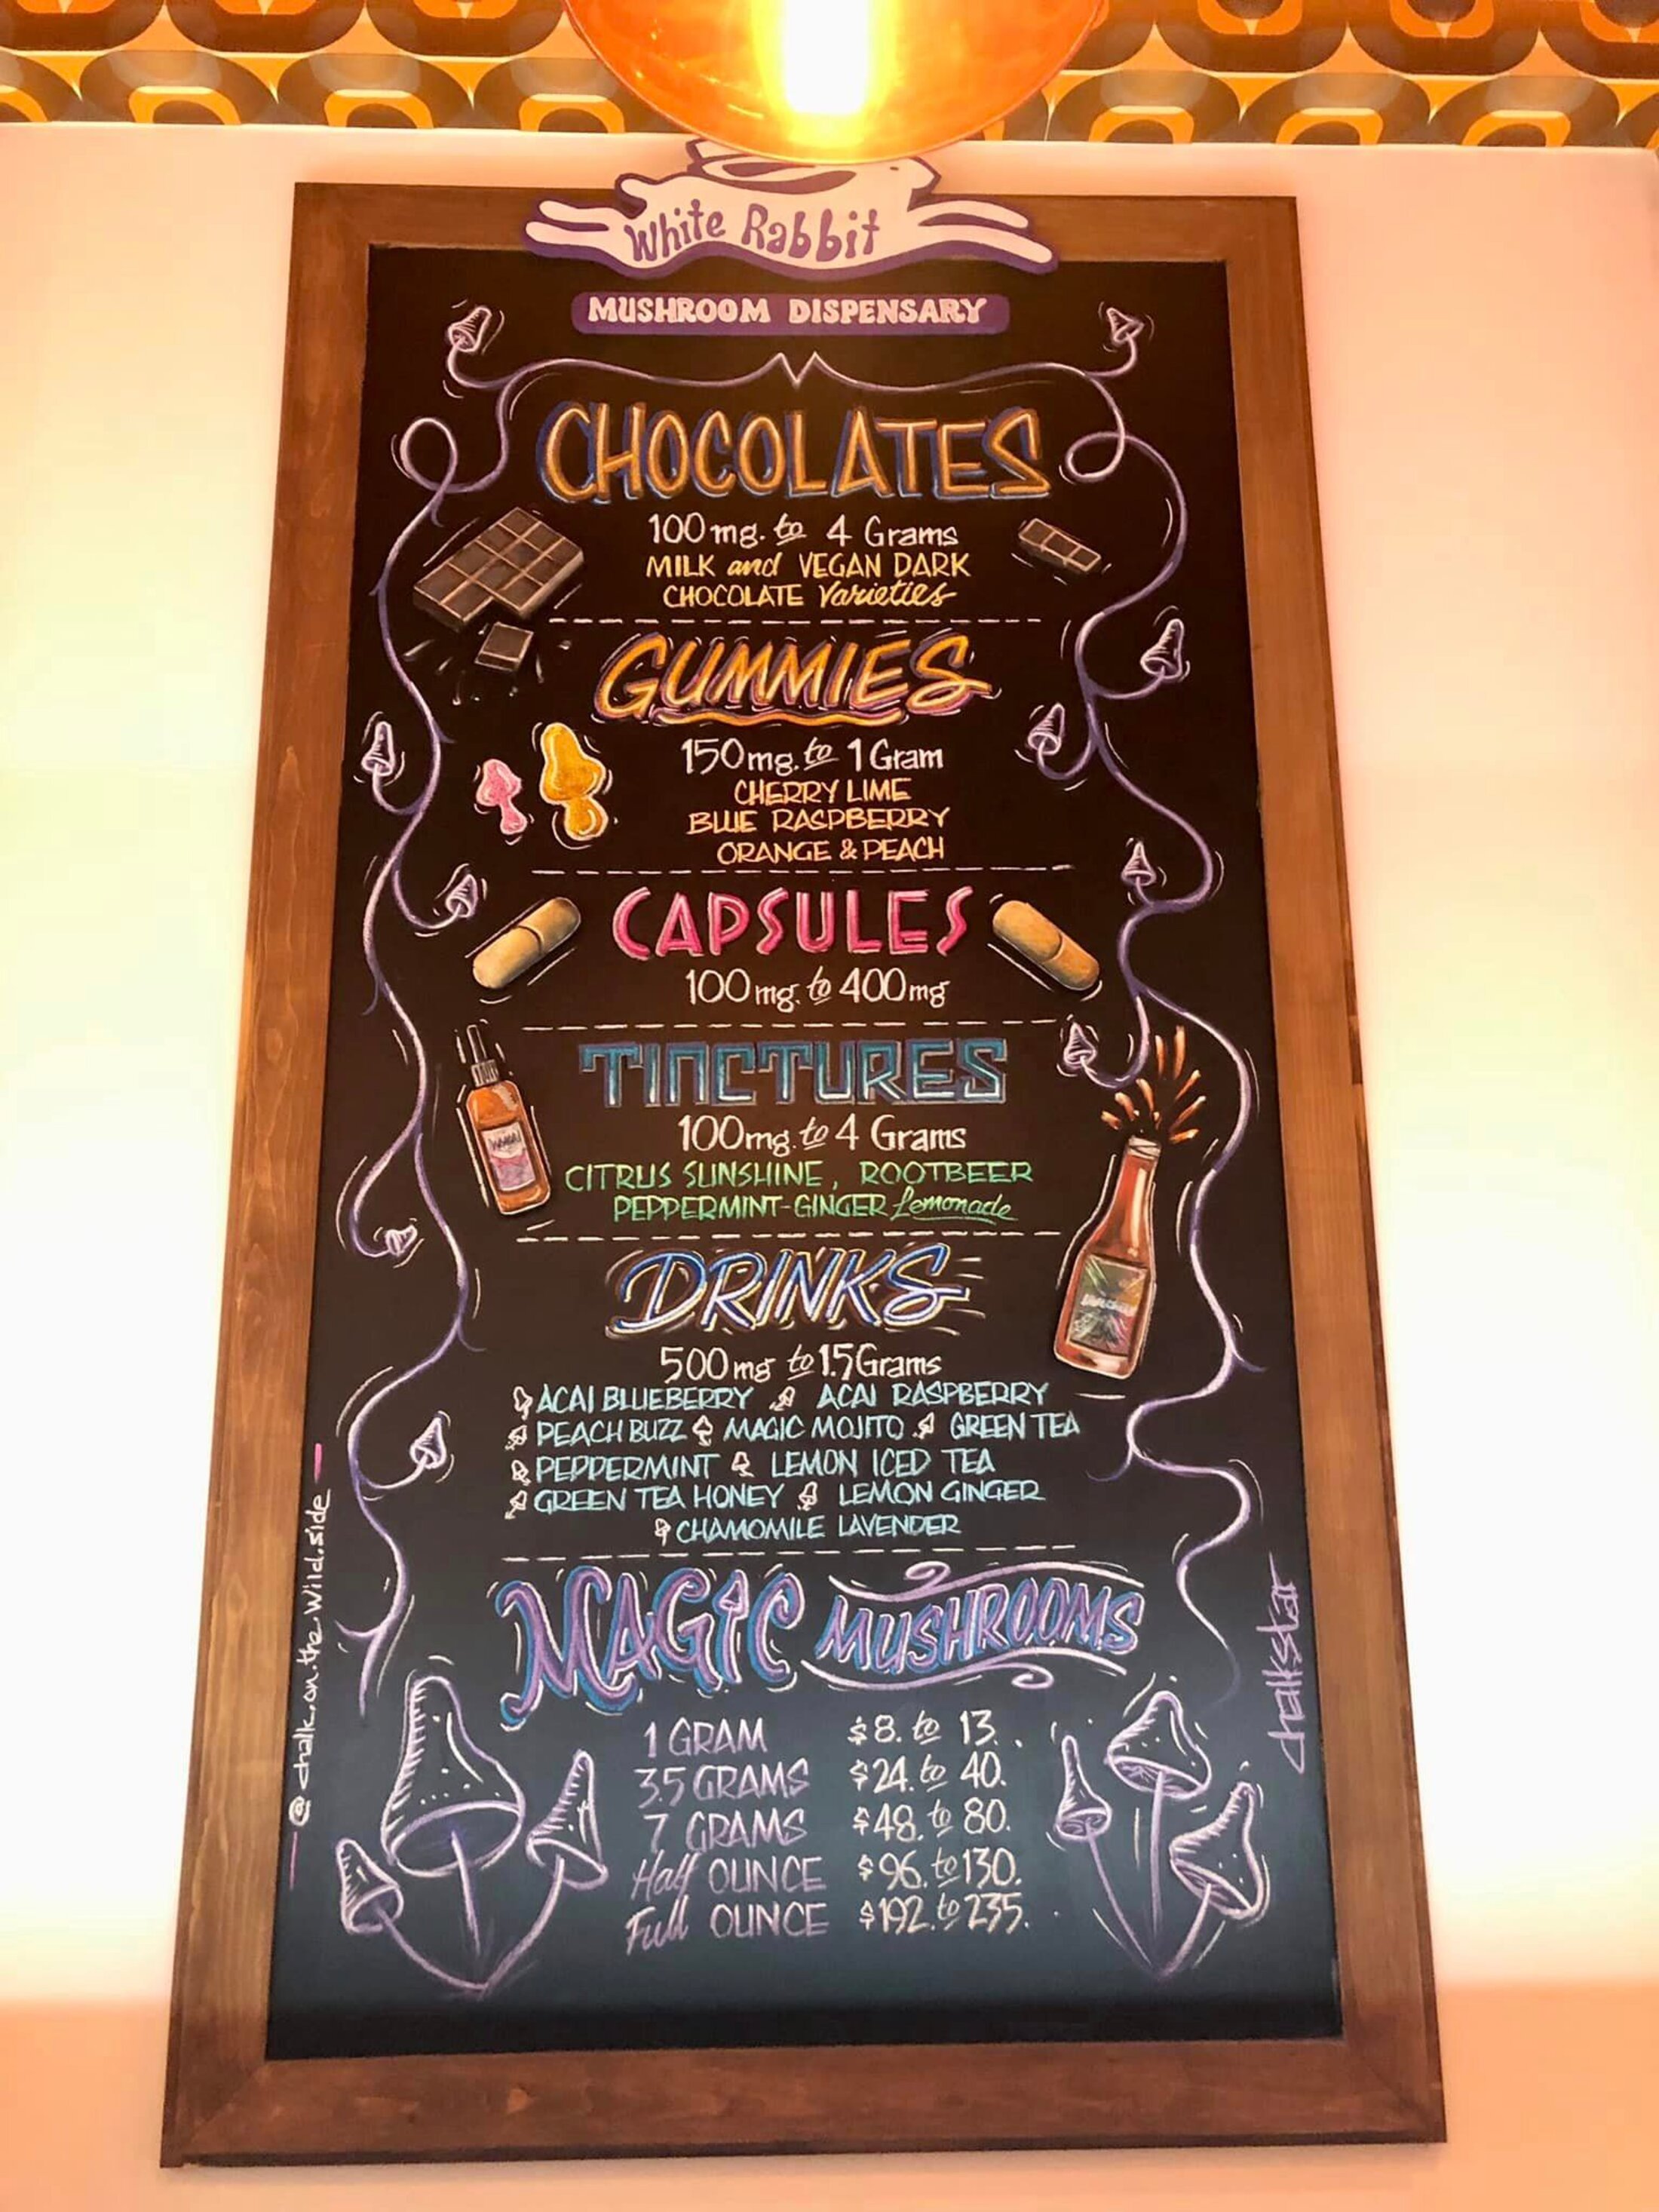 White Rabbit
MUSHROOM DISPENSARY
CHOCOLATES
100mg. to 4 Grams
MILK and VEGAN DARK
CHOCOLATE Varieties
GUMMIES
150mg. to 1 Gram
CHERRY LIME
BLUE RASPBERRY
ORANGE & PEACH
CAPSULES
100mg. to 400mg
TINCTURES
100mg. to 4 Grams
CITRUS SUNSHINE, ROOTBEER
PEPPERMINT-GINGER Lemonade
DRINKS
500mg to 1.5 Grams
ACAI BLUEBERRY ACAI RASPBERRY
PEACH BUZZ MAGIC MOJITO GREEN TEA
PEPPERMINT LEMON ICED TEA
GREEN TEA HONEY LEMON GINGER
CHAMOMILE LAVENDER
MAGIC MUSHROOMS
1 GRAM $8. to 13.
3.5 GRAMS $24. to 40.
7 GRAMS $48. to 80.
Half OUNCE $96. to 130.
Full OUNCE $192. to 235.
@chalk.on.the.wild.side
chalkstar